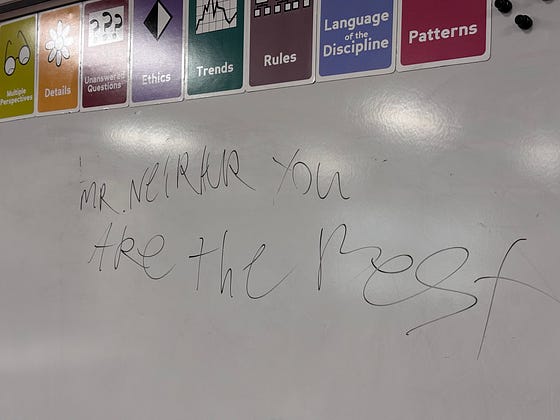 Multiple
Perspectives
Details
???
Unanswered
Questions
Ethics
Trends
Rules
Language
of the
Discipline
Patterns
MR. NeIRHUR You
ARe the Best